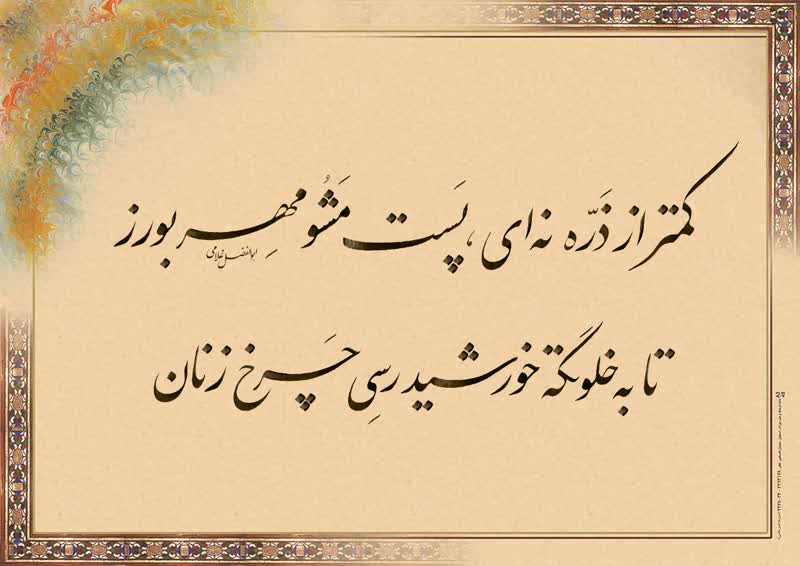 کمتر از ذَرّه نه‌ای، پَست مَشُو مِهر بورز
ابوالفضل غلامی
تا به خلوتگه خورشید رسِی چَرخ زنان